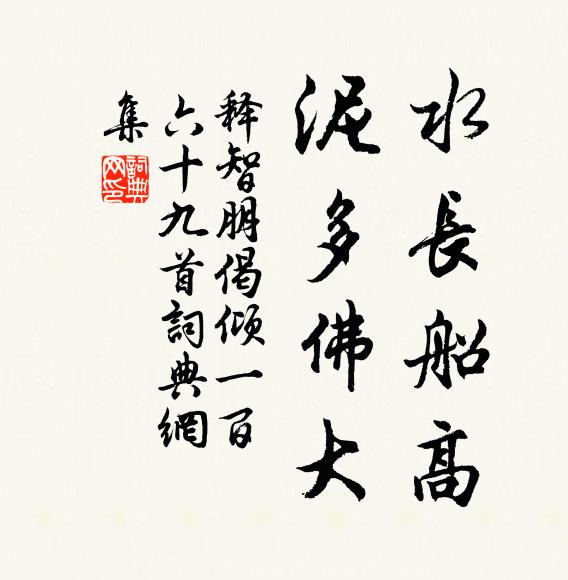 水長船高
泥多佛大
释智朋偈傾一百
六十九首詞典網
集
詞典
网印